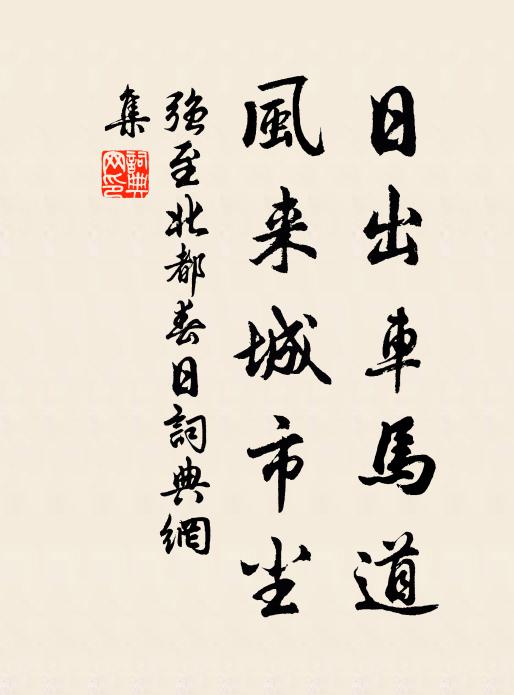 日出車馬道
風来城市尘
強至北都春日詞典網
集
詞典網印